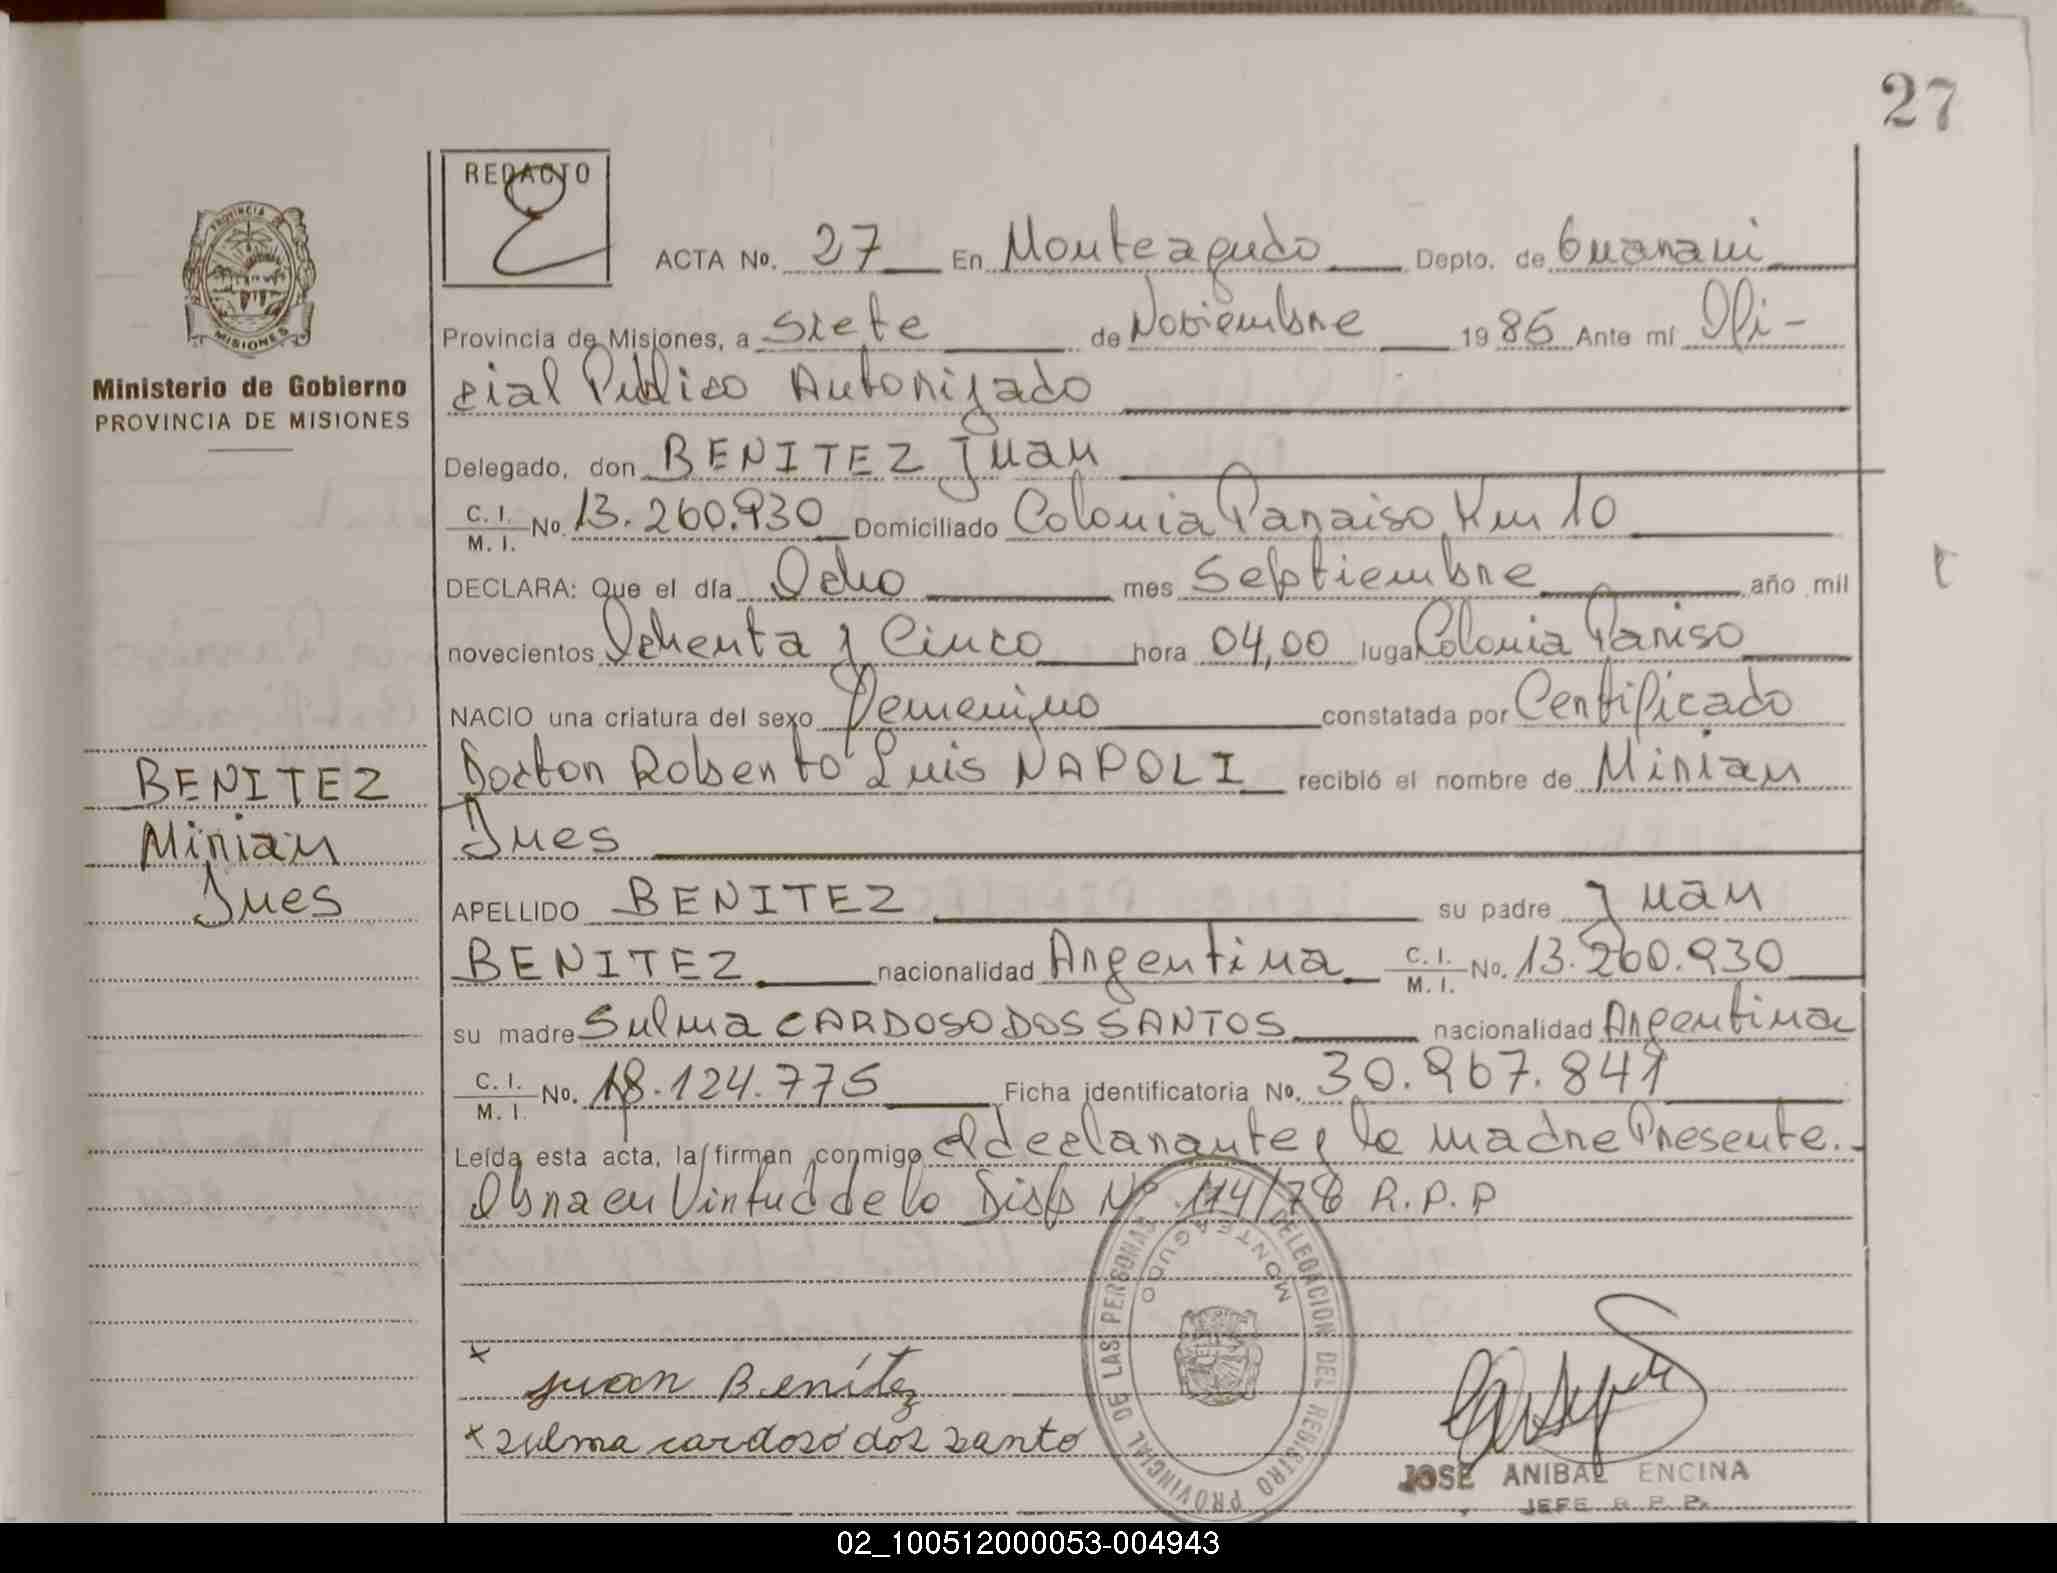 27
REDACTO
ACTA No. 27 En Monteagudo Depto. de Guarani
Provincia de Misiones, a Siete de Noviembre 1986 Ante mí Ofi-
cial Publico Autorizado
PROVINCIA DE MISIONES
Ministerio de Gobierno
PROVINCIA DE MISIONES
Delegado, don BENITEZ Juan
C. I. / M. I. No. 13.260.930 Domiciliado Colonia Paraiso Km 10
DECLARA: Que el día Ocho mes Septiembre año mil
novecientos Ochenta y Cinco hora 04,00 lugar Colonia Pariso
NACIO una criatura del sexo Femenino constatada por Certificado
Doctor Roberto Luis NAPOLI recibió el nombre de Mirian
Ines
BENITEZ
Mirian
Ines
APELLIDO BENITEZ su padre Juan
BENITEZ nacionalidad Argentina C. I. / M. I. No. 13.260.930
su madre Sulma CARDOSO DOS SANTOS nacionalidad Argentina
C. I. / M. I. No. 18.124.775 Ficha identificatoria No. 30.967.841
Leída esta acta, la firman conmigo el declarante y la madre Presente.-
Obra en Virtud de lo Disp Nº 114/78 R.P.P
x juan Benítez
x sulma cardoso dos santo
DELEGACION DEL REGISTRO PROVINCIAL DE LAS PERSONAS
MONTEAGUDO
JOSE ANIBAL ENCINA
JEFE R. P. P.
02_100512000053-004943